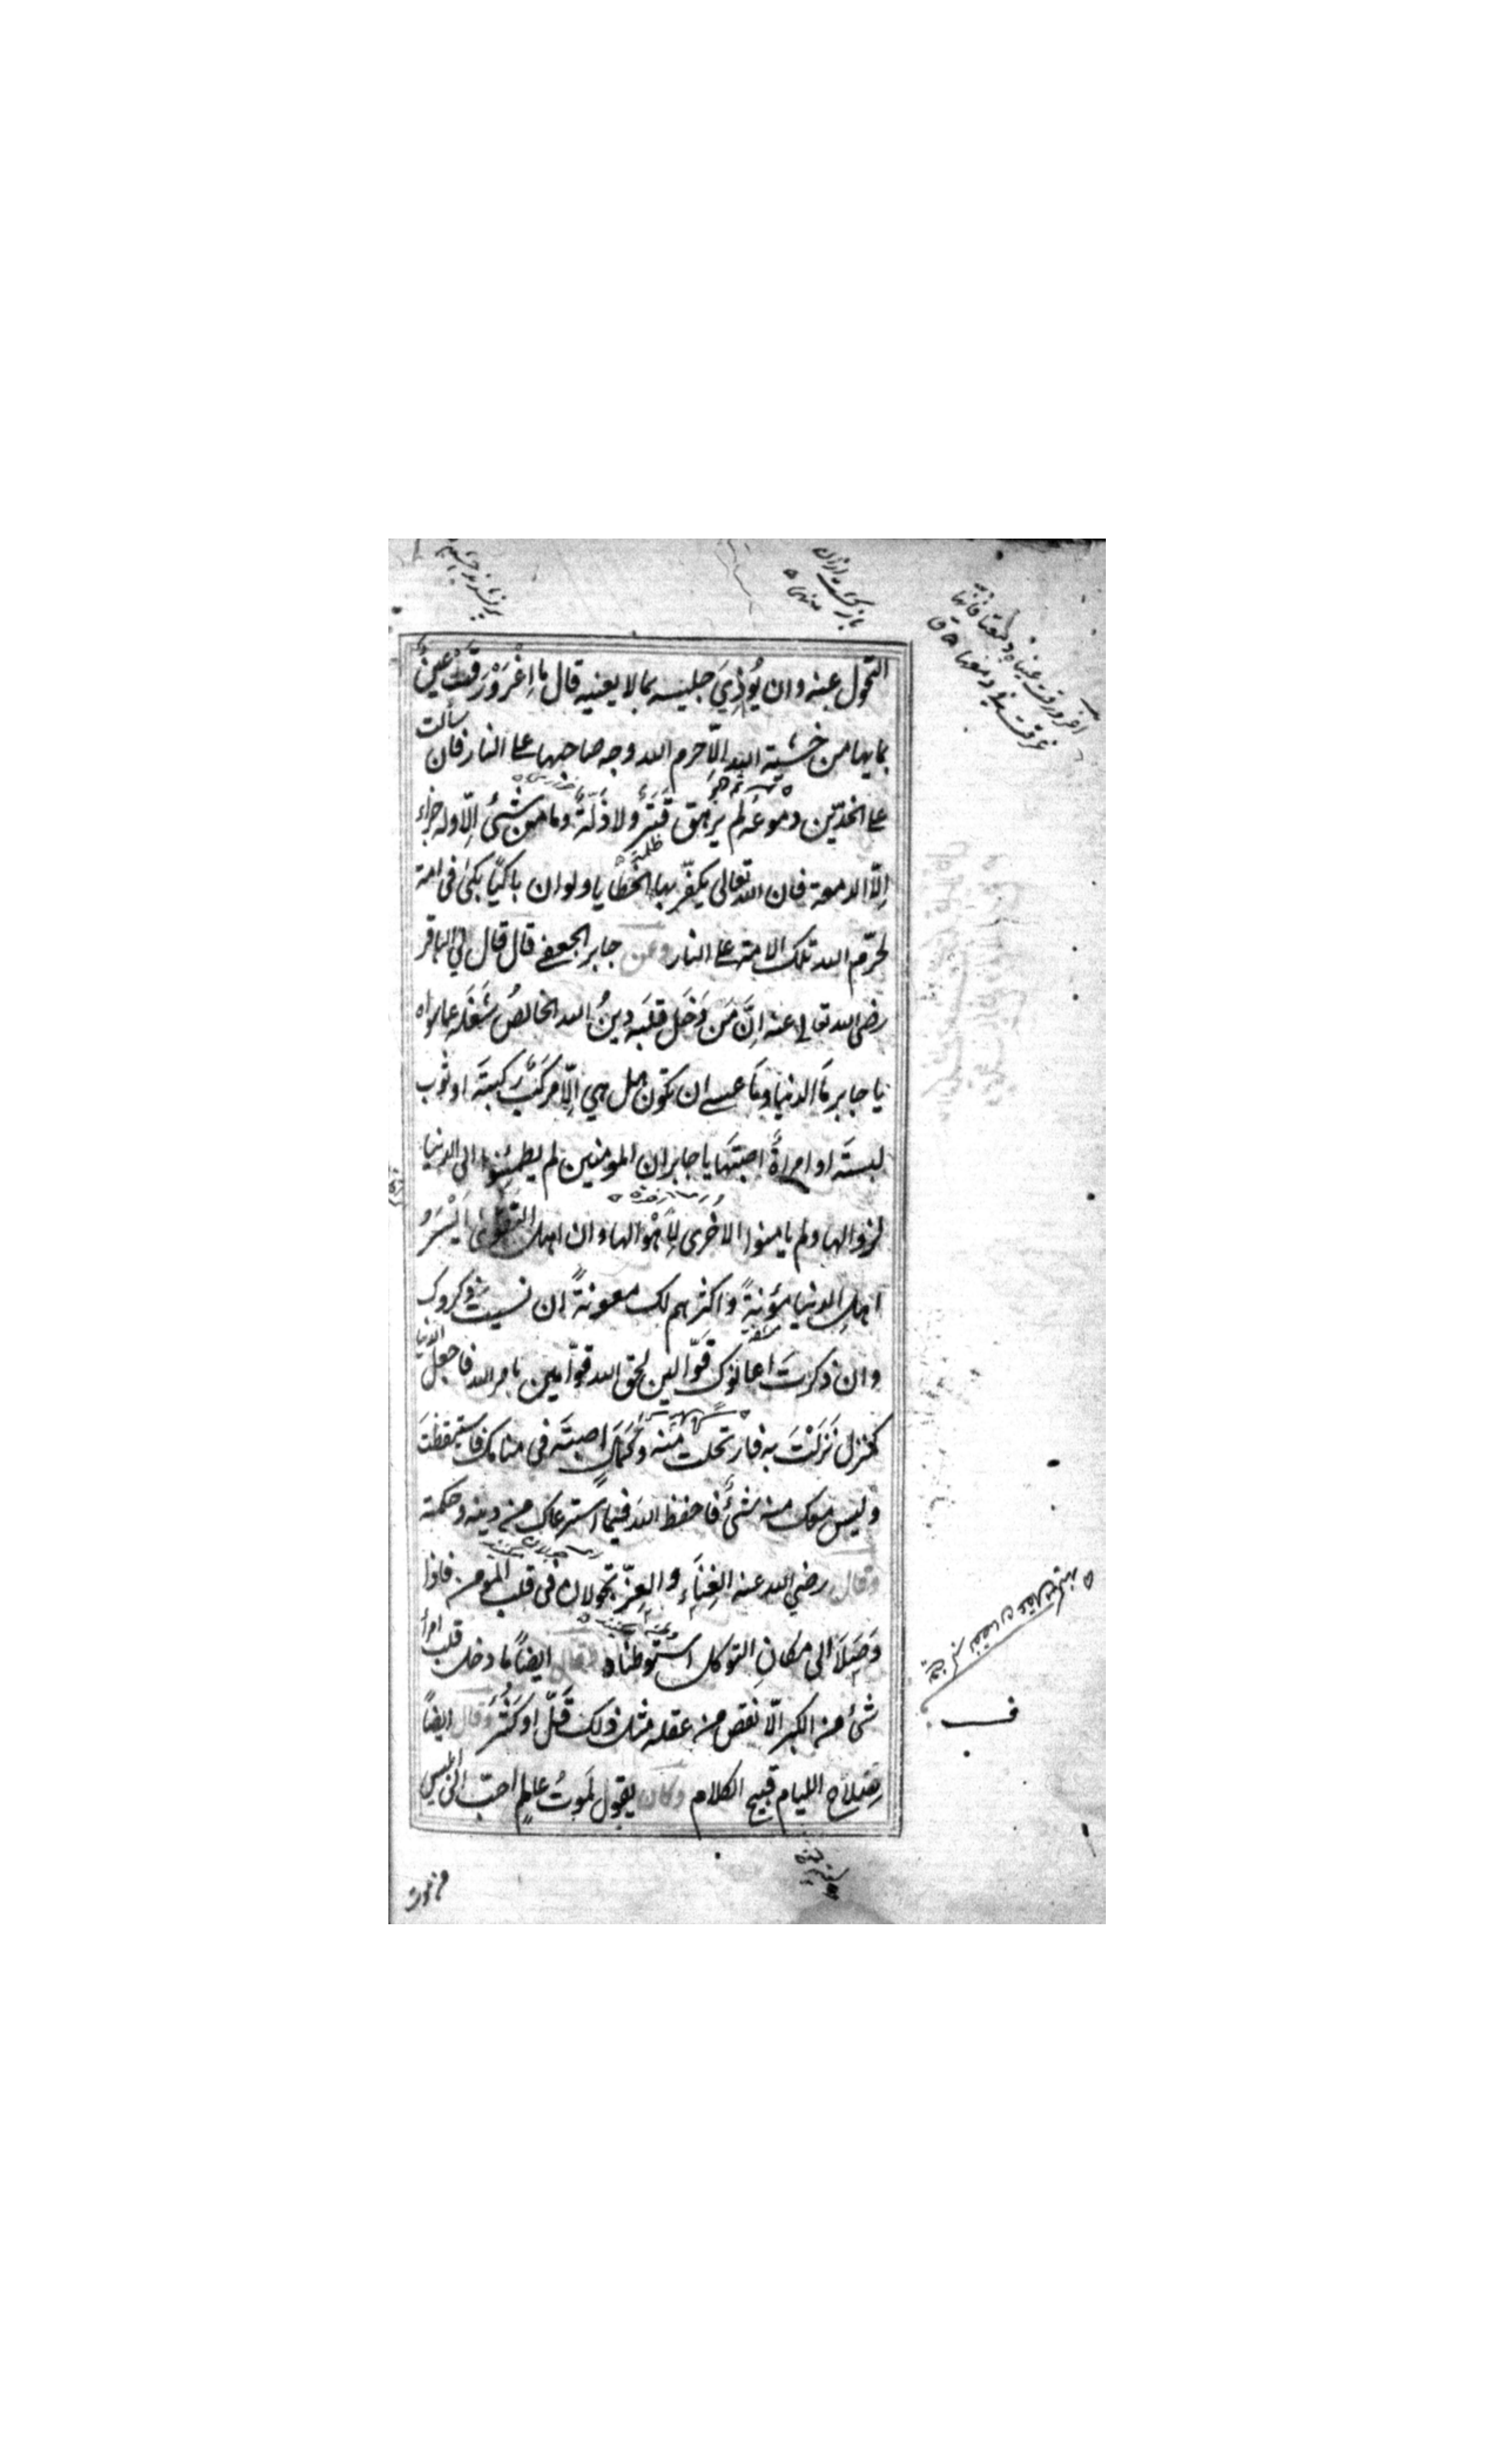 التحول عنه وان يُؤذِيَ جليسه بما لا يعنيه قال ما اِغْرَوْرَقَتْ عينٌ
بمايها من خشية الله اِلّا حرم الله وجه صاحبها على النار فان سالت
على الخدّين دموعه لم يرهق قَتَرٌ ولا ذِلّةٌ وما من شئ اِلّا وله جزاء
اِلّا الدمعة فان الله تعالى يكفّر بها الخطايا ولو ان باكيًا بكى فى امة
لحرّم الله تلك الامة على النار وعن جابر الجعفى قال قال لي الباقر
رضى الله تعالى عنه اِنَّ مَن دَخَل قلبَه دينُ الله الخالصُ شَغَلَه عما سواه
يا جابر مَا الدنيا ومَا عسى ان تكون هل هي اِلّا مركبٌ ركبتَه او ثوب
لبستَه او امراةً اصبتَها يا جابر ان المومنين لم يطمئِنوا الى الدنيا
لزوالها ولم يامنوا الاخرى لِاَهْوالها وان اهل التقوى اَيْسَرُ
اهلِ الدنيا مَؤنةً واكثرهم لك معونةً اِن نسيتَ ذكروك
وان ذكرتَ اعانوك قوّالين لحق الله قوّامين بامر الله فاجعل الدنيا
كمنزل نَزَلْتَ به فارتحلت منه وكمالٍ اصبتَه فى منامك فاستيقظتَ
وليس معك منه شئٌ فاحفظ اللهَ فيما استرعاك من دينه وحكمته
وقال رضي الله عنه الغِنَاء والعِزّ يجولان فى قلب المومن فاذا
وَصَلَا الى مكانِ التوكل استوطناه وقال ايضًا ما دخل قلب امرأ
شئ من الكبر اِلّا نقص من عقله مثل ذلك قَلّ او كَثُرَ وقال ايضاً
سِلاح الليام قبيح الكلام وكان يقول لَموتُ عالمٍ احبّ الى ابليس
من موت